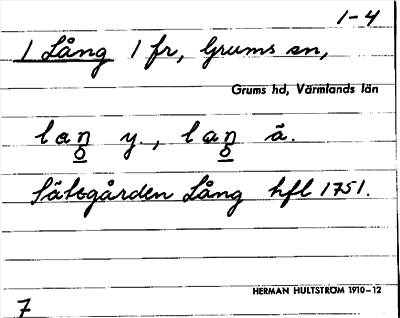 1-4
1 Lång 1 fr, Grums sn,
Grums hd, Värmlands län
laŋ y., laŋ ä.
Säbogården Lång hfl 1751.
HERMAN HULTSTRÖM 1910-12
7